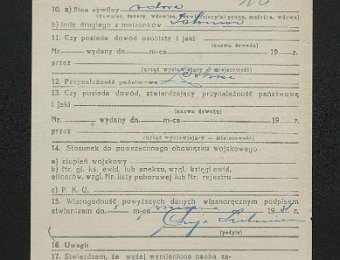 10. a) Stan cywilny wdowa
(kawaler, żonaty, wdowiec, rozwiedziony) panna, mężatka, wdowa)
b) Imię drugiego z małżonków Salomon
11. Czy posiada dowód osobisty i jaki
(nazwa dowodu)
Nr. wydany dn. m-ca 19 r.
przez
(urząd wystawiający, miejscowość)
12. Przynależność państwowa Polska
13. Czy posiada dowód, stwierdzający przynależność państwową
i jaki
(nazwa dowodu)
Nr. wydany dn. m-ca 19 r.
przez
(urząd wystawiający — miejscowość)
14. Stosunek do powszechnego obowiązku wojskowego
a) stopień wojskowy
b) Nr. gł. ks. ewid. lub aneksu, wzgl. księgi ewid.
oficerów, wzgl. Nr. listy poborowej lub Nr. rejestru
c) P. K. U.
15. Wiarogodność powyższych danych własnoręcznym podpisem
stwierdzam dn. m-ca 19 r.
(podpis)
16. Uwagi
17. Stwierdzam, że wyżej wymieniona osoba za-